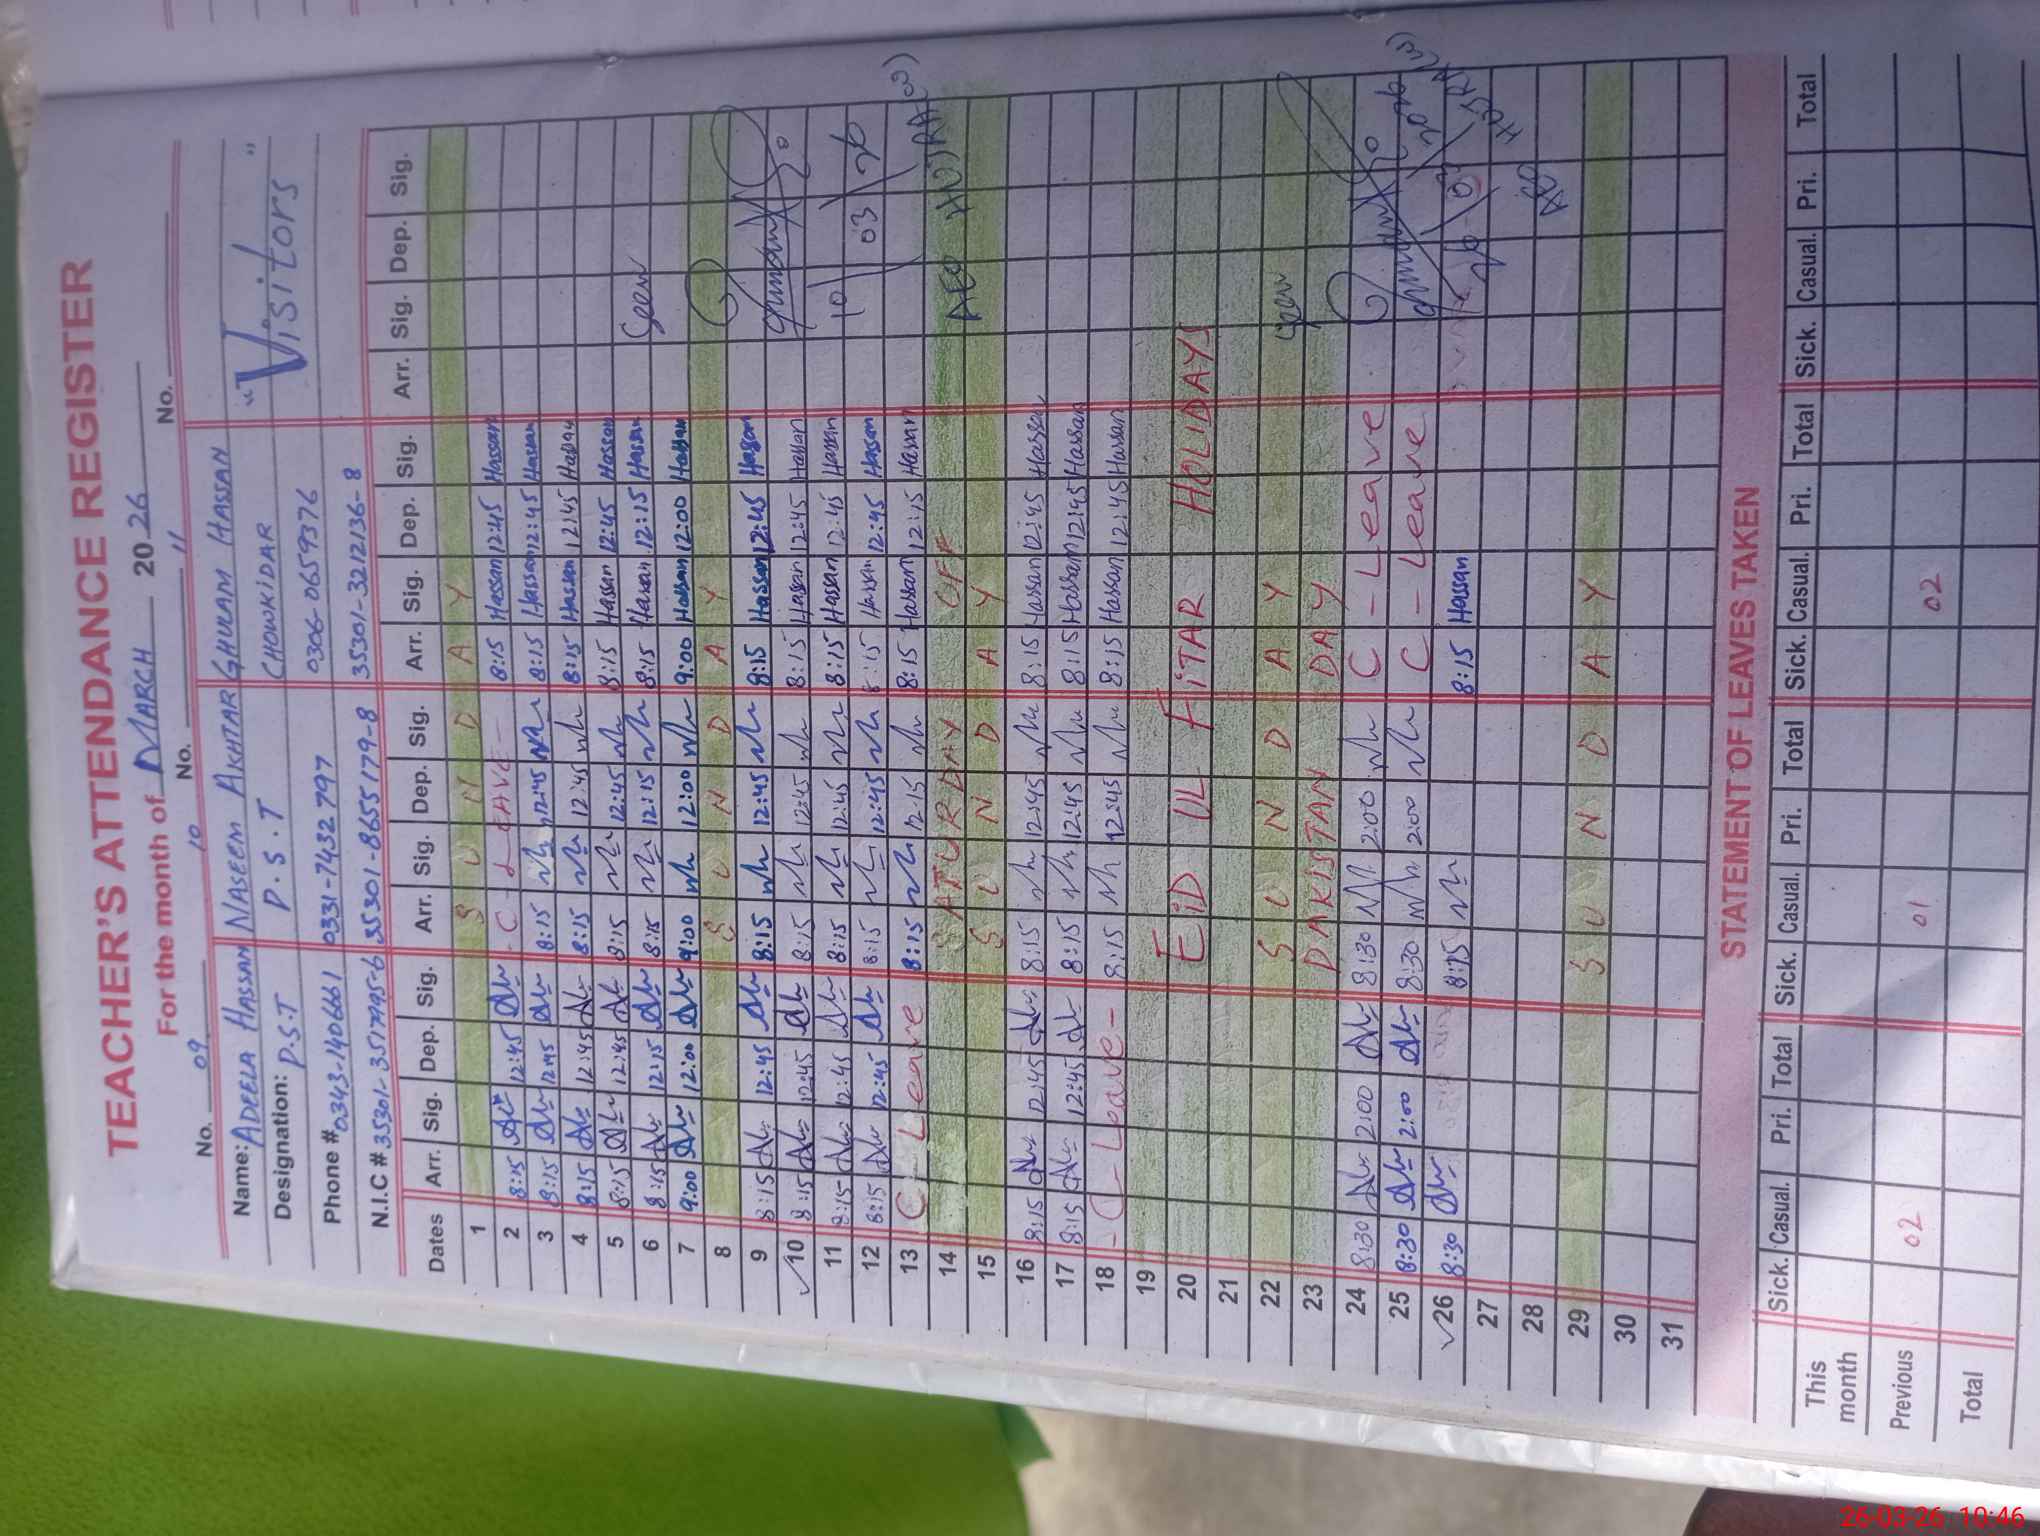 TEACHER'S ATTENDANCE REGISTER
For the month of MARCH 2026
No. 09 No. 10 No. 11 No.
Name: ADEELA HASSAN NASEEM AKHTAR GHULAM HASSAN "Visitors"
Designation: P.S.T P.S.T CHOWKIDAR
Phone # 0343-1406661 0331-7432797 0306-0659376
N.I.C # 35301-3517995-6 35301-8655179-8 35301-3212136-8
Dates Arr. Sig. Dep. Sig. Arr. Sig. Dep. Sig. Arr. Sig. Dep. Sig. Arr. Sig. Dep. Sig.
1 S U N D A Y
2 8:15 12:45 - C - LEAVE - 8:15 Hassan 12:45 Hassan
3 8:15 12:45 8:15 12:45 8:15 Hassan 12:45 Hassan
4 8:15 12:45 8:15 12:45 8:15 Hassan 12:45 Hassan
5 8:15 12:45 8:15 12:45 8:15 Hassan 12:45 Hassan
6 8:15 12:15 8:15 12:15 8:15 Hassan 12:15 Hassan Seen
7 9:00 12:00 9:00 12:00 9:00 Hassan 12:00 Hassan
8 S U N D A Y
9 8:15 12:45 8:15 12:45 8:15 Hassan 12:45 Hassan
10 8:15 12:45 8:15 12:45 8:15 Hassan 12:45 Hassan
11 8:15 12:45 8:15 12:45 8:15 Hassan 12:45 Hassan 10
12 8:15 12:45 8:15 12:45 8:15 Hassan 12:45 Hassan 03 26
13 C - Leave 8:15 12:15 8:15 Hassan 12:15 Hassan
14 SATURDAY OFF AEO
15 S U N D A Y
16 8:15 12:45 8:15 12:45 8:15 Hassan 12:45 Hassan
17 8:15 12:45 8:15 12:45 8:15 Hassan 12:45 Hassan
18 - C - Leave - 8:15 12:45 8:15 Hassan 12:45 Hassan
19
20 EiD UL FiTAR HOLIDAYS
21
22 S U N D A Y Seen
23 PAKISTAN DAY
24 8:30 2:00 8:30 2:00 C - Leave
25 8:30 2:00 8:30 2:00 C - Leave
26 8:30 8:15 8:15 Hassan
27
28 AEO
29 S U N D A Y
30
31
STATEMENT OF LEAVES TAKEN
Sick. Casual. Pri. Total Sick. Casual. Pri. Total Sick. Casual. Pri. Total Sick. Casual. Pri. Total
This month
Previous 02 01 02
Total
26-03-26 10:46